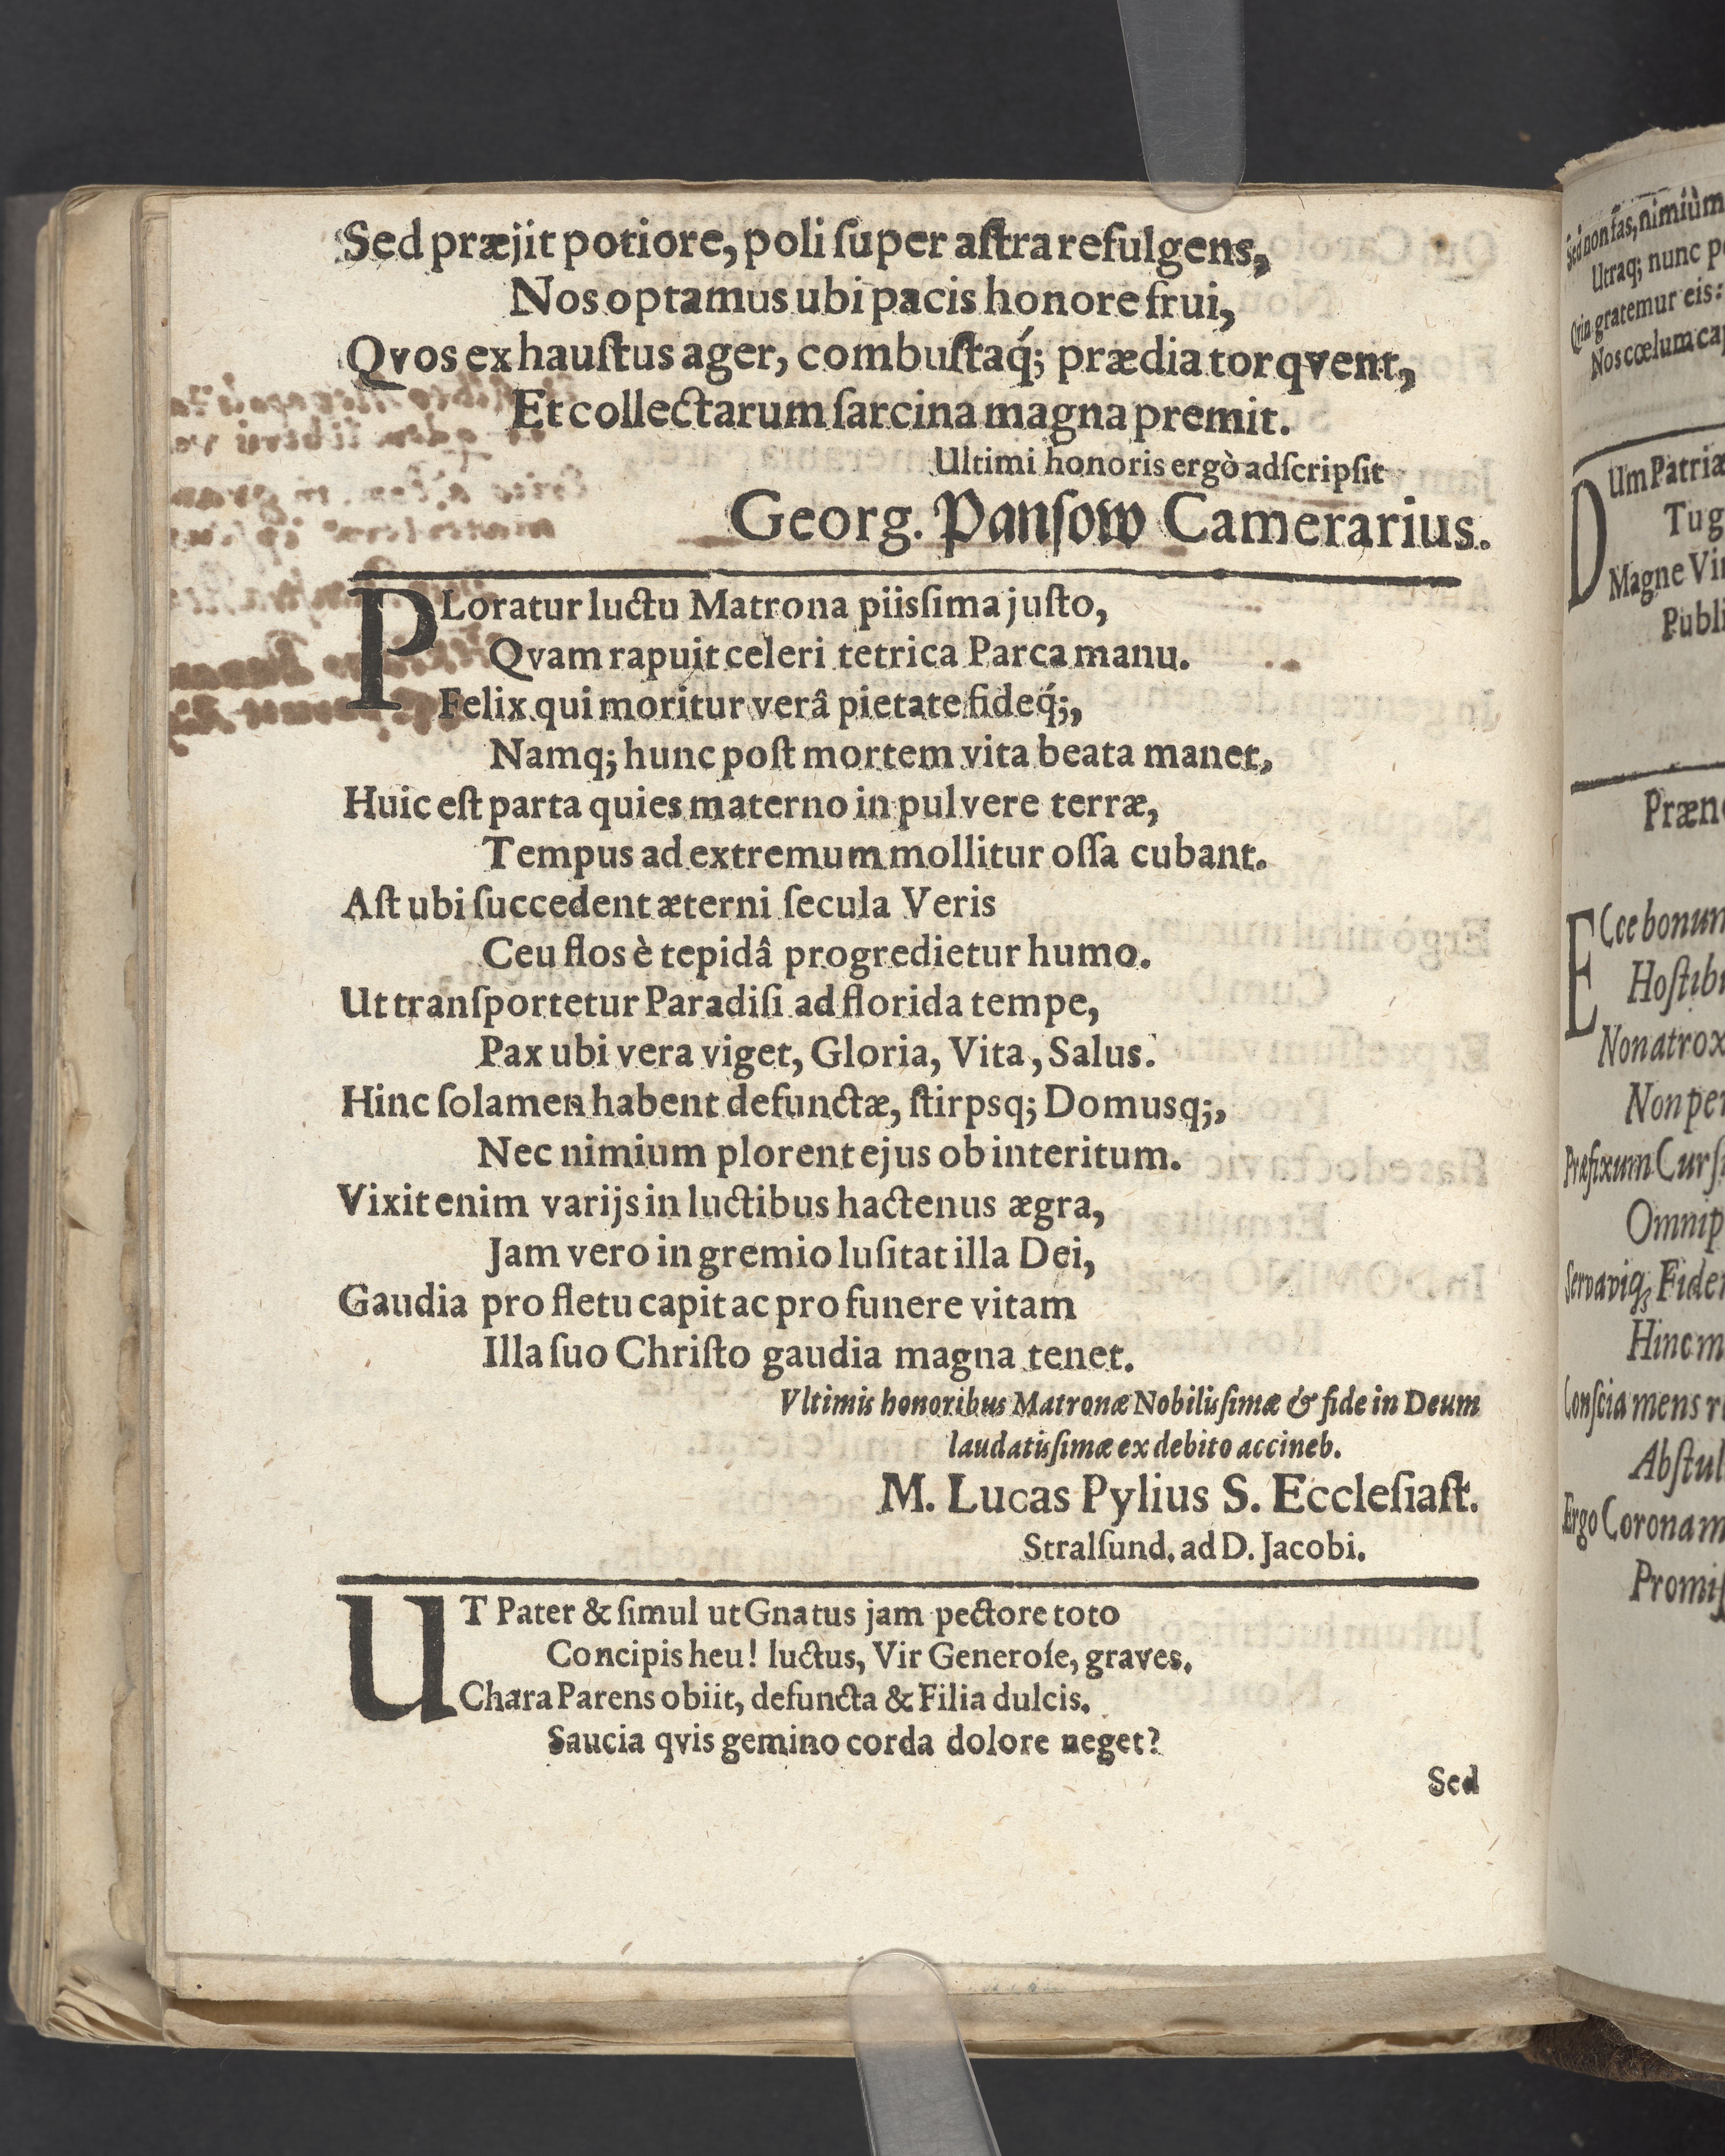 Sed præjit potiore, poli ſuper aſtra refulgens,
Nos optamus ubi pacis honore frui,
Qvos exhauſtus ager, combuſtaq́; prædia torqvent,
Et collectarum ſarcina magna premit.
Ultimi honoris ergò adſcripſit
Georg. Panſow Camerarius.
PLoratur luctu Matrona piisſima juſto,
Qvam rapuit celeri tetrica Parca manu.
Felix qui moritur verâ pietate fideq́;,
Namq; hunc poſt mortem vita beata manet,
Huic eſt parta quies materno in pulvere terræ,
Tempus ad extremum mollitur oſſa cubant.
Aſt ubi ſuccedent æterni ſecula Veris
Ceu flos è tepidâ progredietur humo.
Ut tranſportetur Paradiſi ad florida tempe,
Pax ubi vera viget, Gloria, Vita, Salus.
Hinc ſolamen habent defunctæ, ſtirpsq; Domusq;,
Nec nimium plorent ejus ob interitum.
Vixit enim varijs in luctibus hactenus ægra,
Jam vero in gremio luſitat illa Dei,
Gaudia pro fletu capit ac pro funere vitam
Illa ſuo Chriſto gaudia magna tenet.
Vltimis honoribus Matronæ Nobilisſimæ & fide in Deum
laudatisſimæ ex debito accineb.
M. Lucas Pylius S. Eccleſiaſt.
Stralſund. ad D. Jacobi.
UT Pater & ſimul ut Gnatus jam pectore toto
Concipis heu! luctus, Vir Generoſe, graves.
Chara Parens obiit, defuncta & Filia dulcis.
Saucia qvis gemino corda dolore neget?
Sed
Sed non fas, nimiùm
Utraq; nunc
Qvin gratemur eis:
Nos cœlum
DUm Patriæ
Magne
ECce bonum
Non atrox
Præfixum
Servaviq; Fidem
Hinc
Conſcia mens
Ergo Coronam